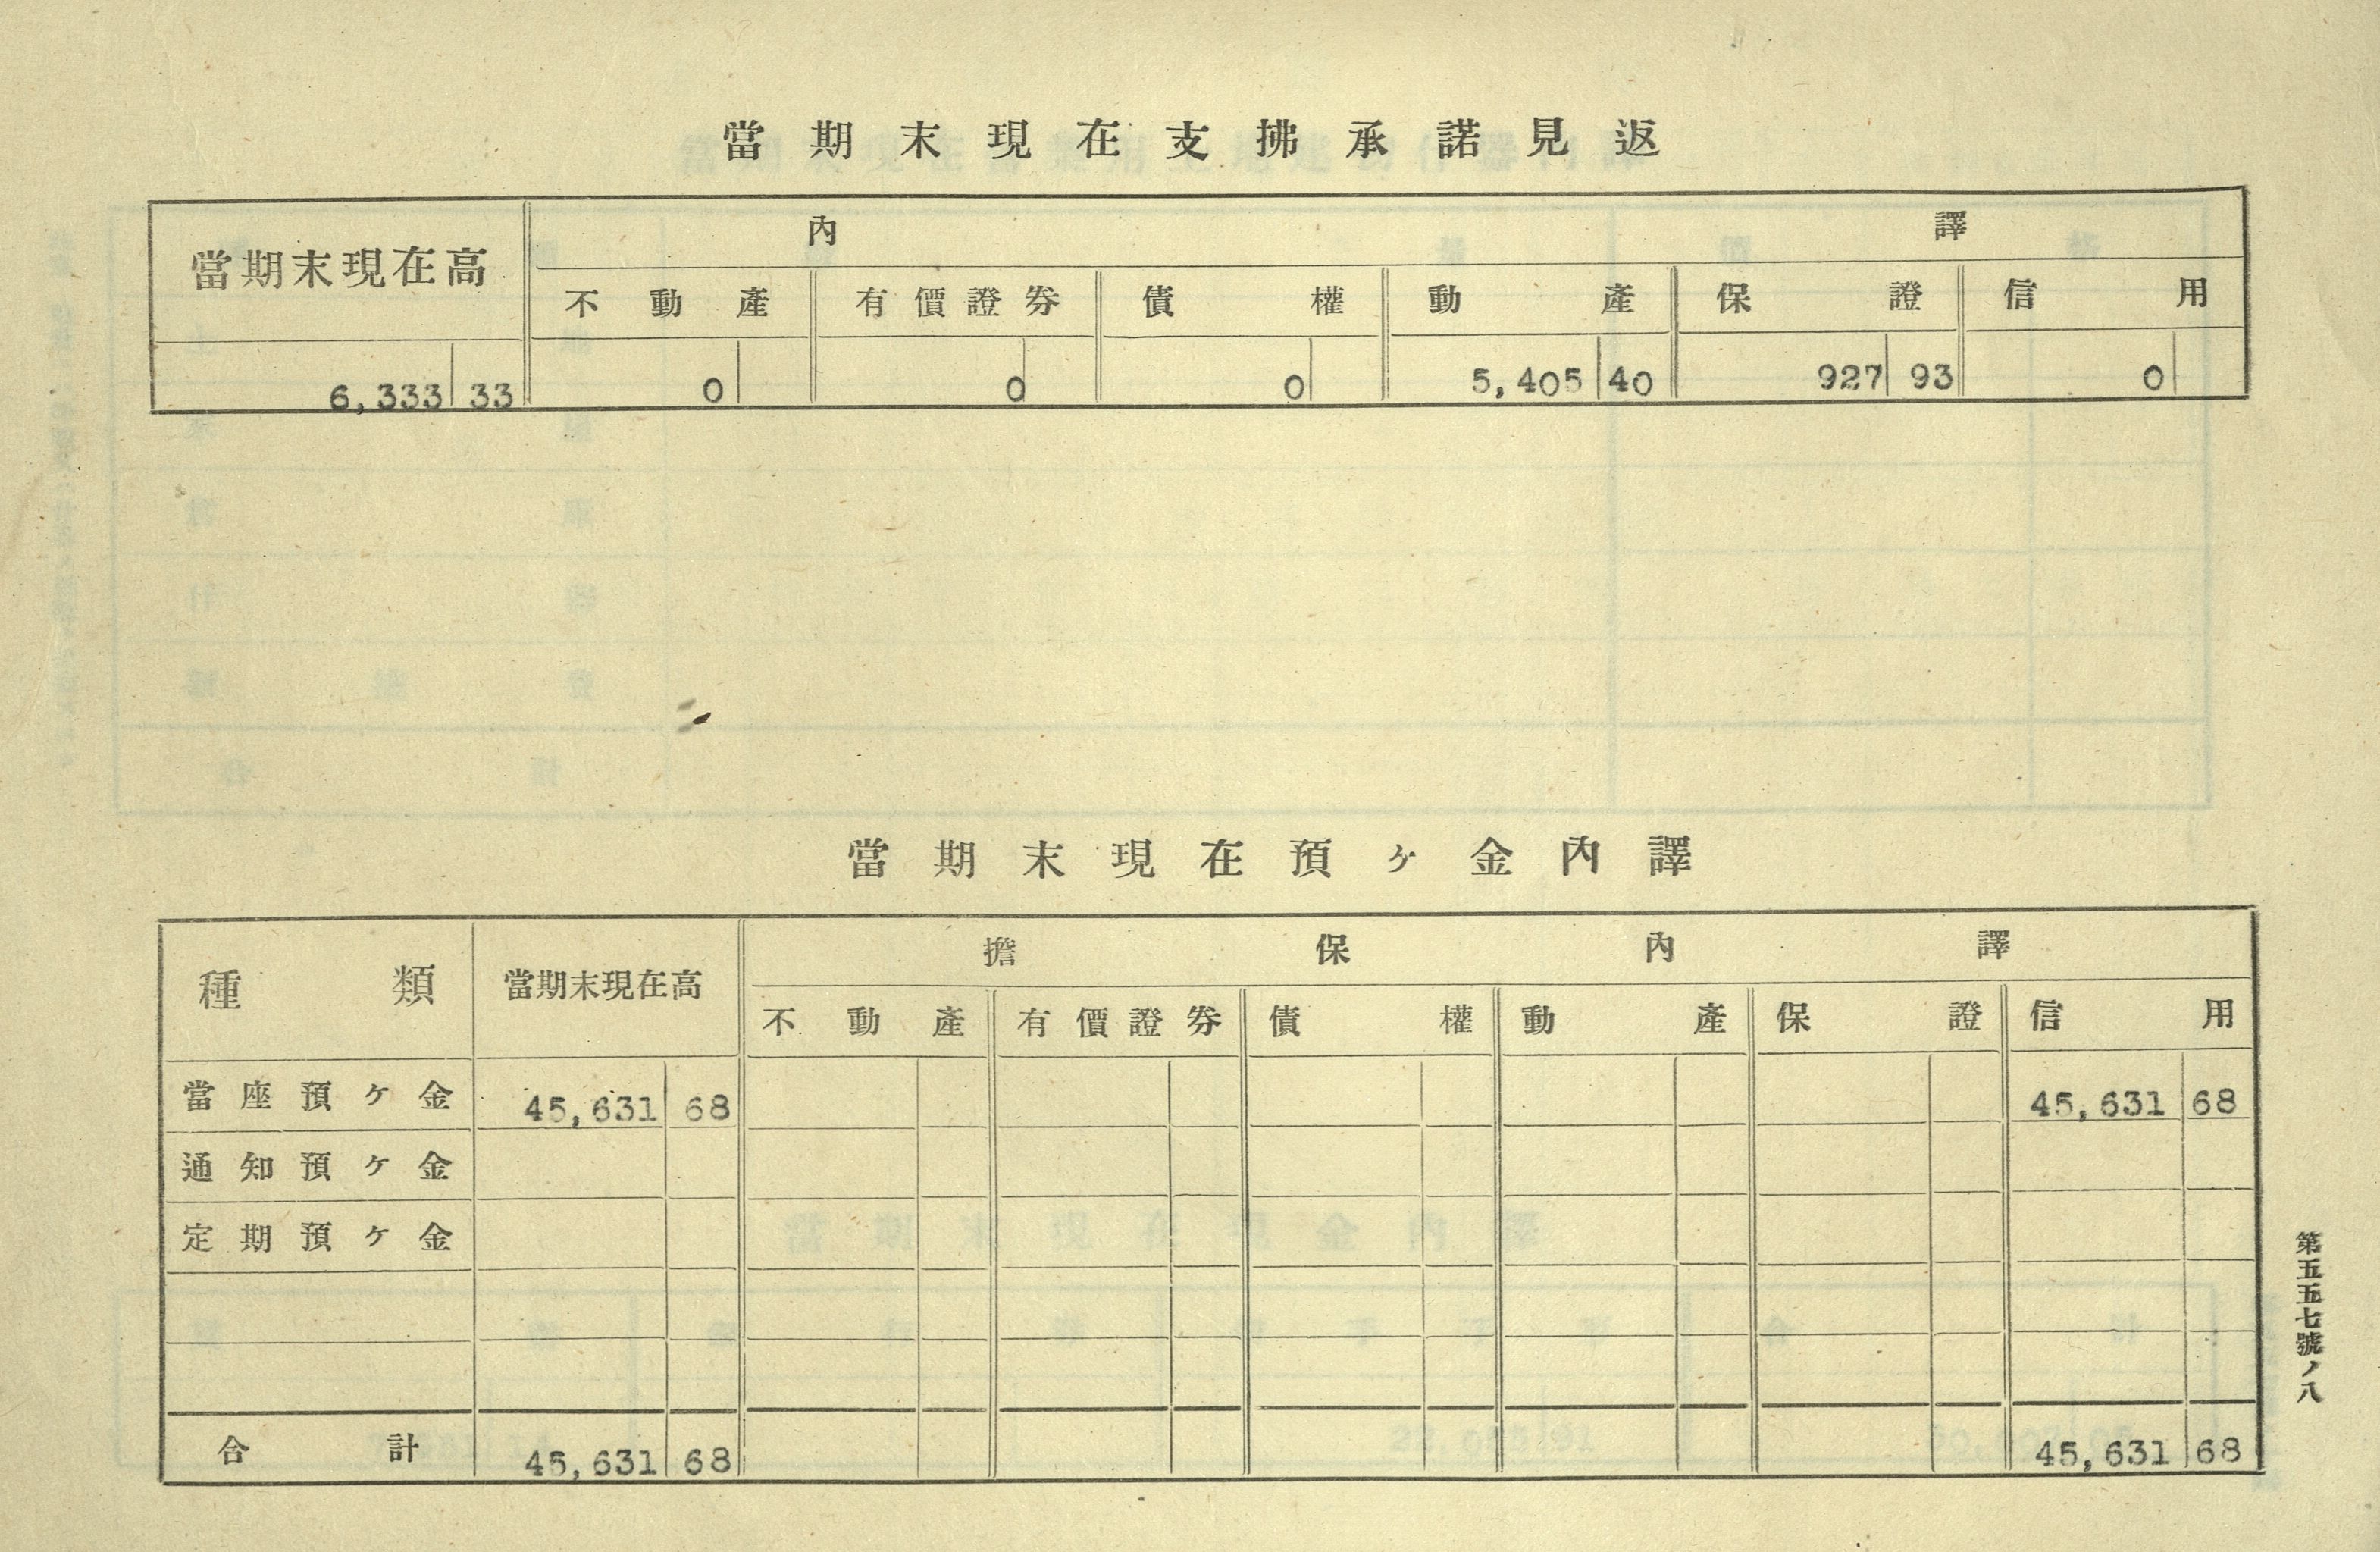 當期末現在支拂承諾見返
當期末現在高 內譯
不動產 有價證券 債權 動產 保證 信用
6,333 33 0 0 0 5,405 40 927 93 0
當期末現在預ヶ金內譯
種類 當期末現在高 擔保內譯
不動產 有價證券 債權 動產 保證 信用
當座預ヶ金 45,631 68 45,631 68
通知預ヶ金
定期預ヶ金
合計 45,631 68 45,631 68
第五五七號ノ八